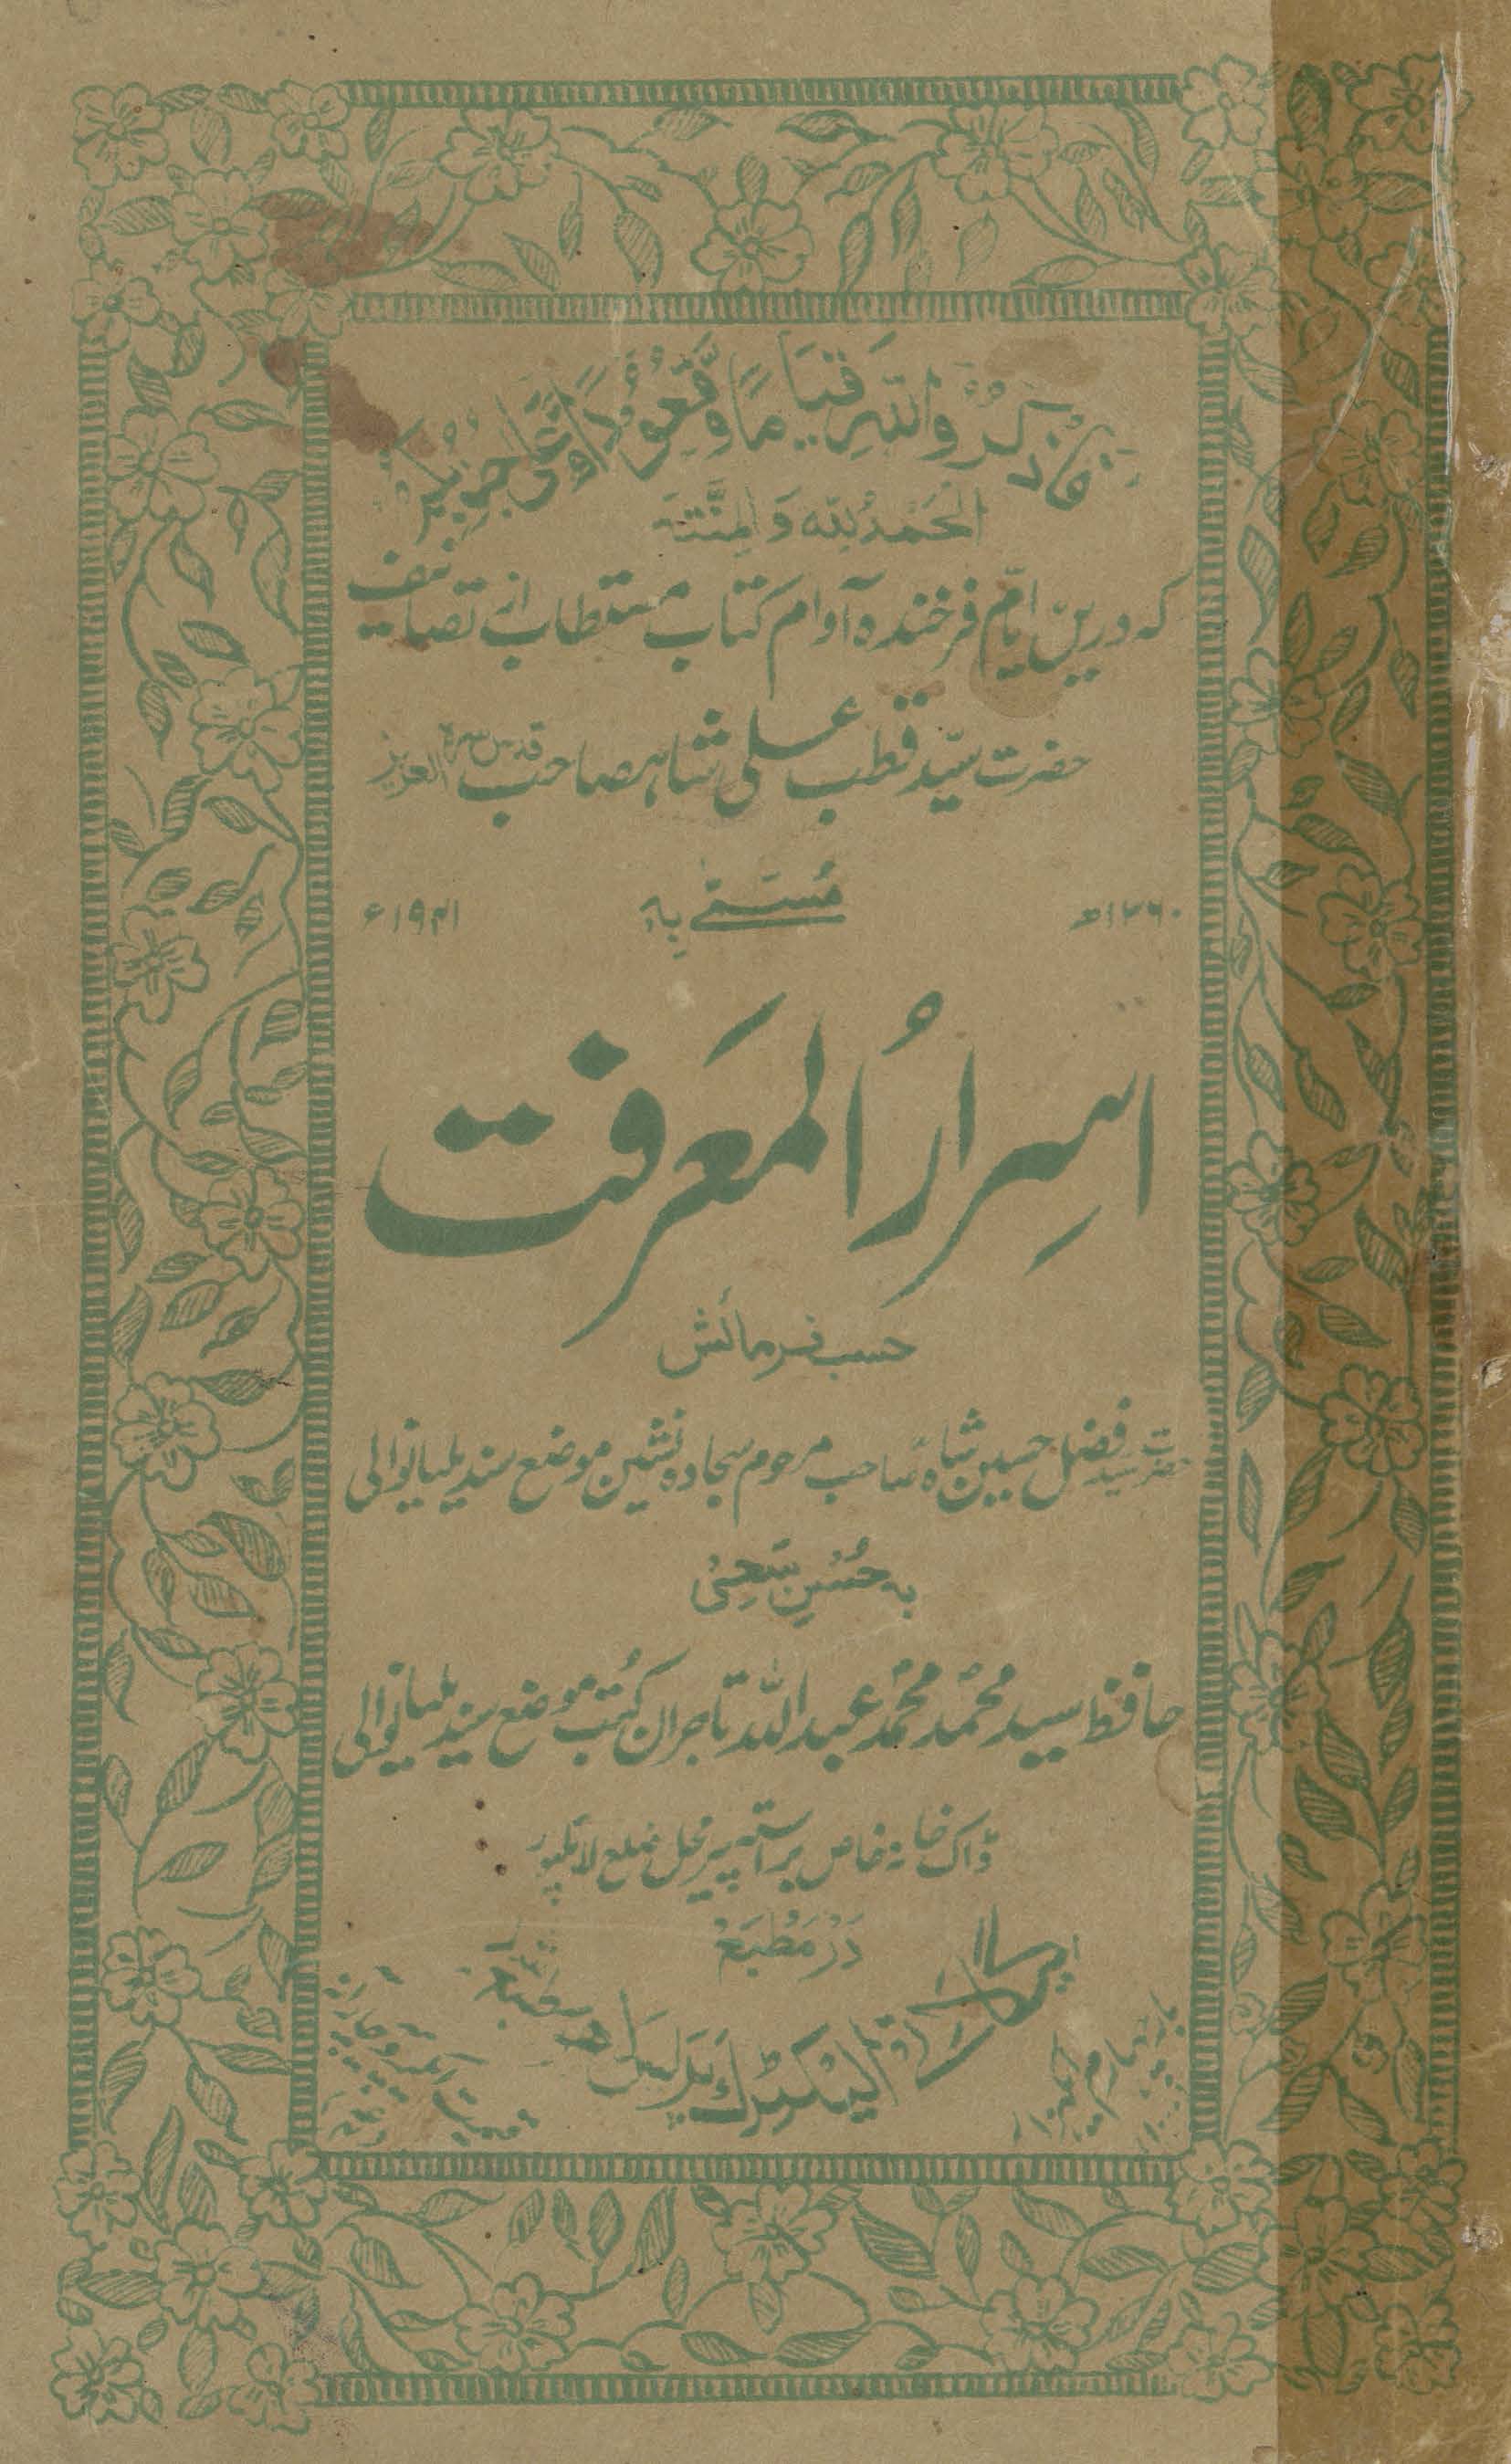 فَاذْكُرُوا اللّٰهَ قِيَامًا وَّقُعُوْدًا وَّعَلٰى جُنُوْبِكُمْ
الْحَمْدُ لِلّٰهِ وَ الْمِنَّتَہ
کہ درین ایّام فرخندہ آوام کتاب مستطاب از تصانیف
حضرت سیّد قطب علی شاہ صاحب قدس سرہ العزیز
۱۳۶۰ھ مُسَمّٰے بِہ ۱۹۴۱ء
اسرارُ المَعرفت
حسب فرمائش
حضرت سید فضل حسین شاہ صاحب مرحوم سجادہ نشین موضع سندیلیانوالی
بہ حُسْنِ سَعِیْ
حافظ سید محمّد محمّد عبد اللہ تاجران کُتب موضع سندیلیانوالی
ڈاک خانہ خاص براستہ پیر محل ضلع لائلپور
دَرْ مَطْبَعْ
الیکٹرک پریس
بار چہارم
قیمت